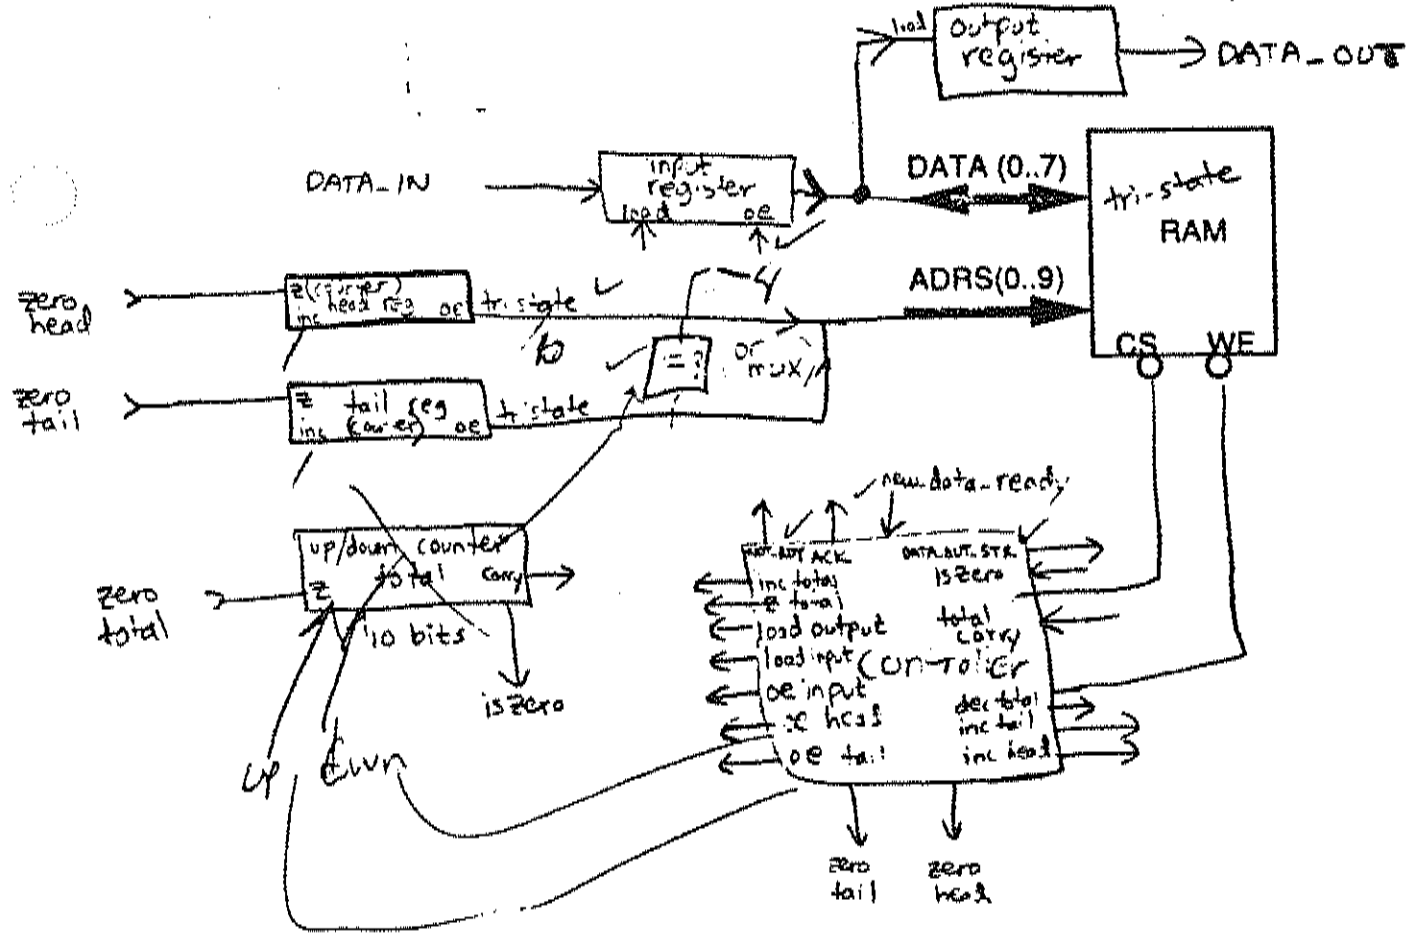 load
output
register
DATA_OUT
DATA_IN
input
register
load oe
DATA (0..7)
tri-state
RAM
CS WE
ADRS(0..9)
zero
head
z (counter)
head reg
inc oe
tri state
10
= ?
or
mux
zero
tail
z tail reg
inc oe
tristate
zero
total
up/down counter
total
carry
z
10 bits
iszero
up down
new_data_ready
ACK
DATA_OUT_STR
inc total
z total
load output
load input
oe input
oe head
oe tail
iszero
total
carry
Controller
dec total
inc tail
inc head
zero
tail
zero
head